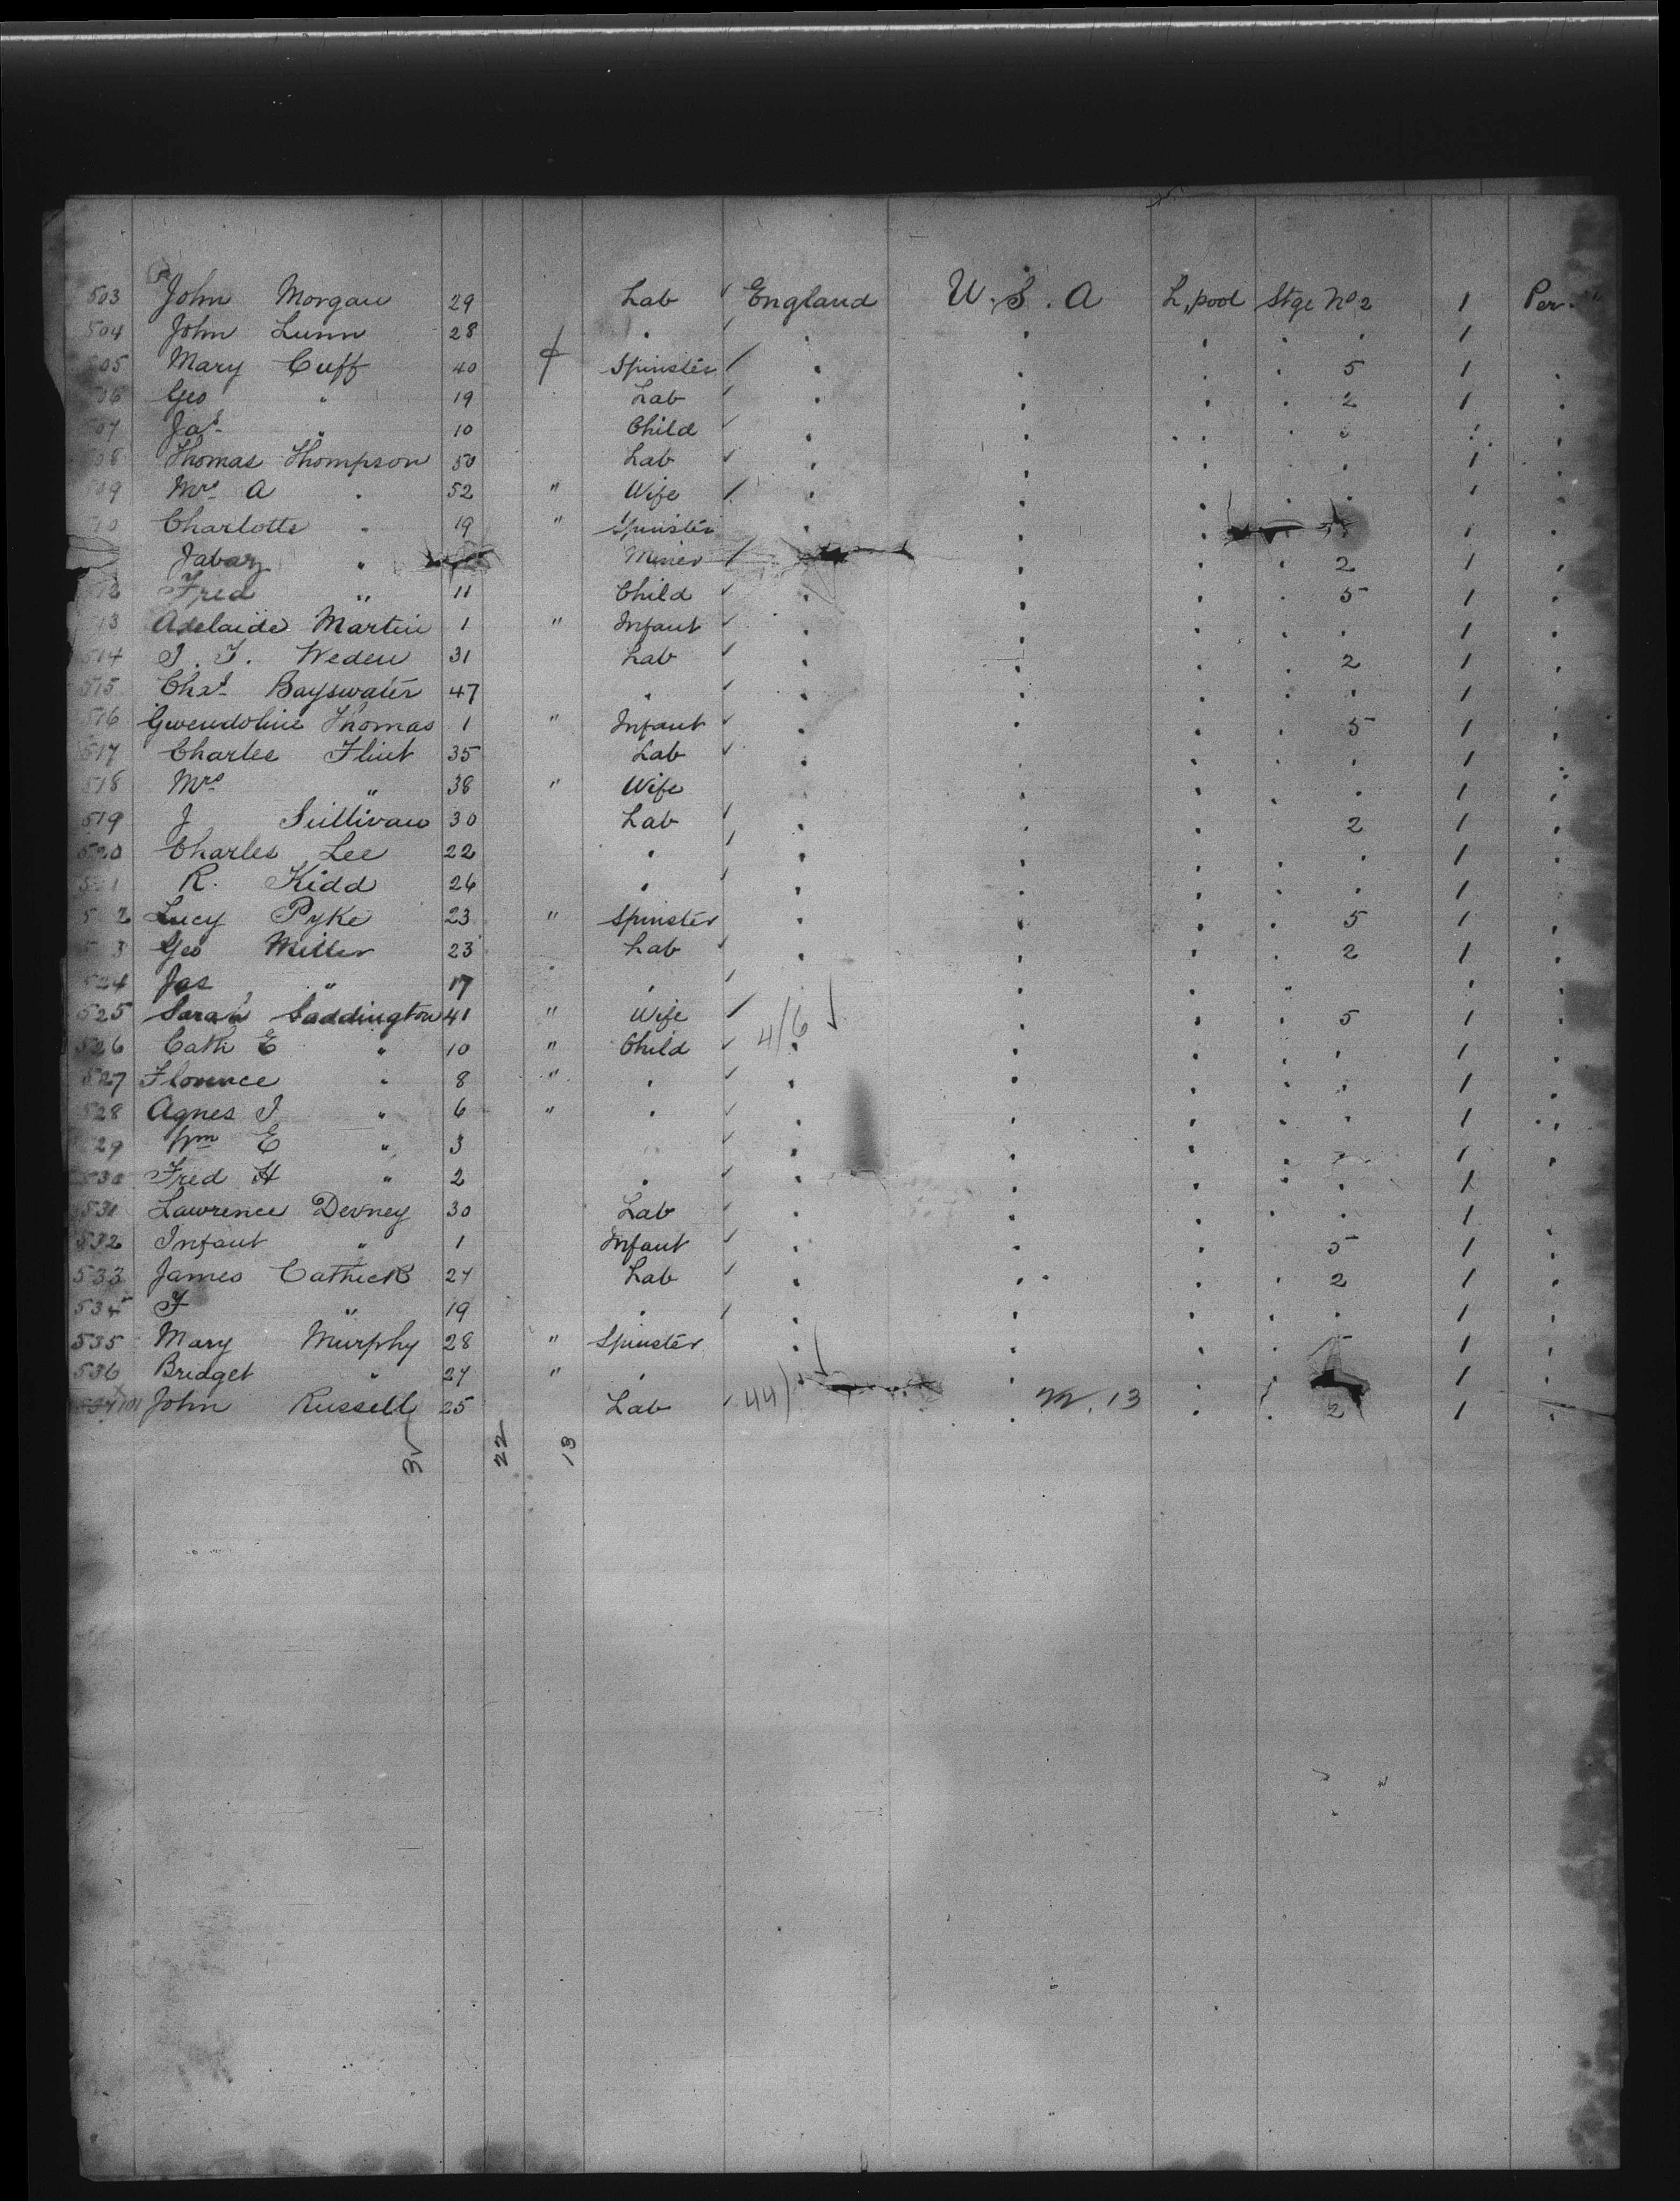 503 John Morgan 29 Lab ✓ England U.S.A L,,pool Stge No 2 1 Per.
504 John Lunn 28 . ✓ . . . . . 1
505 Mary Cuff 40 Spinster / . . . . 5 1 .
506 Geo . 19 Lab ✓ . . . . 2 1 .
507 Jas . 10 Child ✓ . . . .
508 Thomas Thompson 50 Lab ✓ . . . . . 1 .
509 Mrs A . 52 " Wife / . . . . . 1
510 Charlotte . 19 " Spinster . . . 1 .
Jabaz " Miner / . . . 2 1 .
512 Fred " 11 Child ✓ . . . . 5 1 .
513 Adelaide Martin 1 " Infant ✓ . . . . . 1 .
514 J. J. Weden 31 Lab ✓ . . . . 2 1 .
515 Chas Bayswater 47 . ✓ . . . . . 1 .
516 Gwendoline Thomas 1 " Infant ✓ . . . . 5 1 .
517 Charles Flint 35 Lab ✓ . . . . . 1 .
518 Mrs " 38 " Wife . . . . 1 .
519 J Sullivan 30 Lab ✓ . . . 2 1 .
520 Charles Lee 22 . ✓ . . . . . 1 .
521 R. Kidd 26 . ✓ . . . . . 1 .
522 Lucy Pyke 23 " Spinster . . . . 5 1 .
523 Geo Miller 23 Lab ✓ . . . . 2 1 .
524 Jas " 17 . ✓ . . . . .
525 Sarah Saddington 41 " Wife ✓ 4/6 . . . 5 1 .
526 Cath E " 10 " Child ✓ . . . . . 1 .
527 Florence " 8 " . ✓ . . . . . 1 .
528 Agnes J " 6 " . ✓ . . . . . 1 .
529 Wm E " 3 ✓ . . . . . 1 .
530 Fred H " 2 . ✓ . . . . . 1
531 Lawrence Devney 30 Lab ✓ . . . . . 1
532 Infant " 1 Infant ✓ . . . 5 1 .
533 James Cathick 27 Lab ✓ . . . . 2 1 .
534 F " 19 . ✓ . . . . . 1 .
535 Mary Murphy 28 " Spinster . . . . 1 .
536 Bridget " 27 " . . . . 1 .
John Russell 25 Lab ✓ 44) . M. 13 . . 2 1 .
22 13